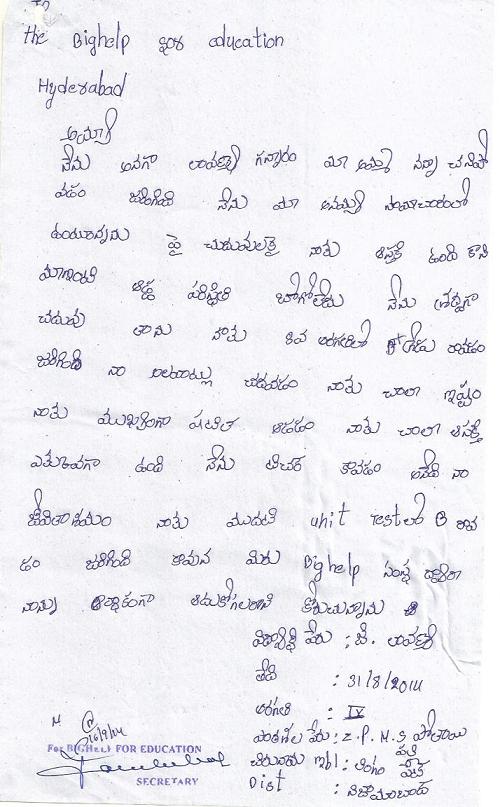 To
The Bighelp for education
Hyderabad
అయ్యా
నేను అనగా లావణ్య గన్నారం మా అమ్మ నాన్న చనిపో
వడం జరిగింది నేను మా అమ్మమ్మ
ఉంటున్నాను పై చదువులకై నాకు ఆసక్తి ఉంది కాని
మాఇంటి ఆర్థిక పరిస్థితి బాగోలేదు నేను శ్రద్ధగా
చదువు తాను నాకు 8వ తరగతిలో రావడం
జరిగింది నా చదవడం నాకు చాలా ఇష్టం
నాకు ముఖ్యంగా ఆడడం నాకు చాలా ఆసక్తి
ఎక్కువగా ఉంది నేను టీచర్ కావడం అనేది నా
జీవితాశయం నాకు మొదటి unit testలో B రావ
డం జరిగింది కావున మీరు Bighelp సంస్థ ద్వారా
నన్ను ఆర్థికంగా ఆదుకోగలరని కోరుచున్నాను
విద్యార్థి పేరు : జె. లావణ్య
తేది : 31/8/2014
తరగతి : IX
పాఠశాల పేరు : Z.P.H.S
చిరునామా mbl : లింగం
Dist : నిజామాబాద్
For BIGHELP FOR EDUCATION
SECRETARY